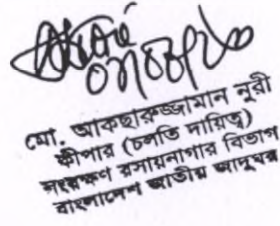 মো. আকছারুজ্জামান নুরী
কীপার (চলতি দায়িত্ব)
সংরক্ষণ রসায়নাগার বিভাগ
বাংলাদেশ জাতীয় জাদুঘর